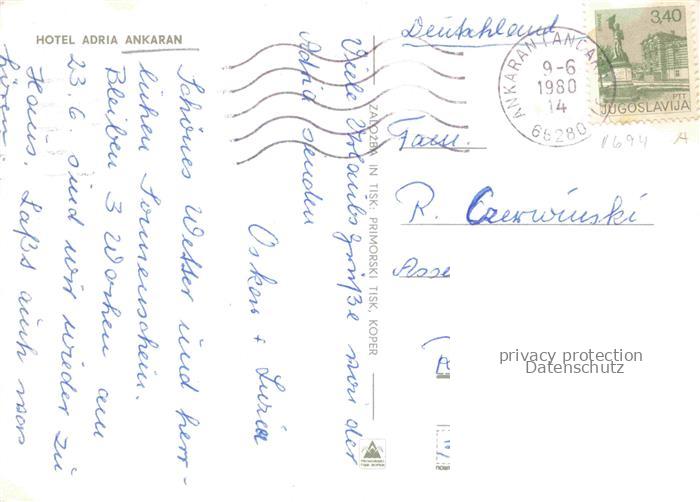 HOTEL ADRIA ANKARAN
Viele Urlaubsgrüße von der
Adria senden
Oskar + Luzia
Schönes Wetter und herr-
lichen Sonnenschein.
Bleiben 3 Wochen am
23.6. sind wir wieder zu
Haus. Laßt auch von
hören
ZALOŽBA IN TISK: PRIMORSKI TISK, KOPER
Deutschland
Fam.
R. Czerwinski
Asse
ANKARAN
9-6
1980
14
66280
3,40
PTT
JUGOSLAVIJA
1694 A
privacy protection
Datenschutz